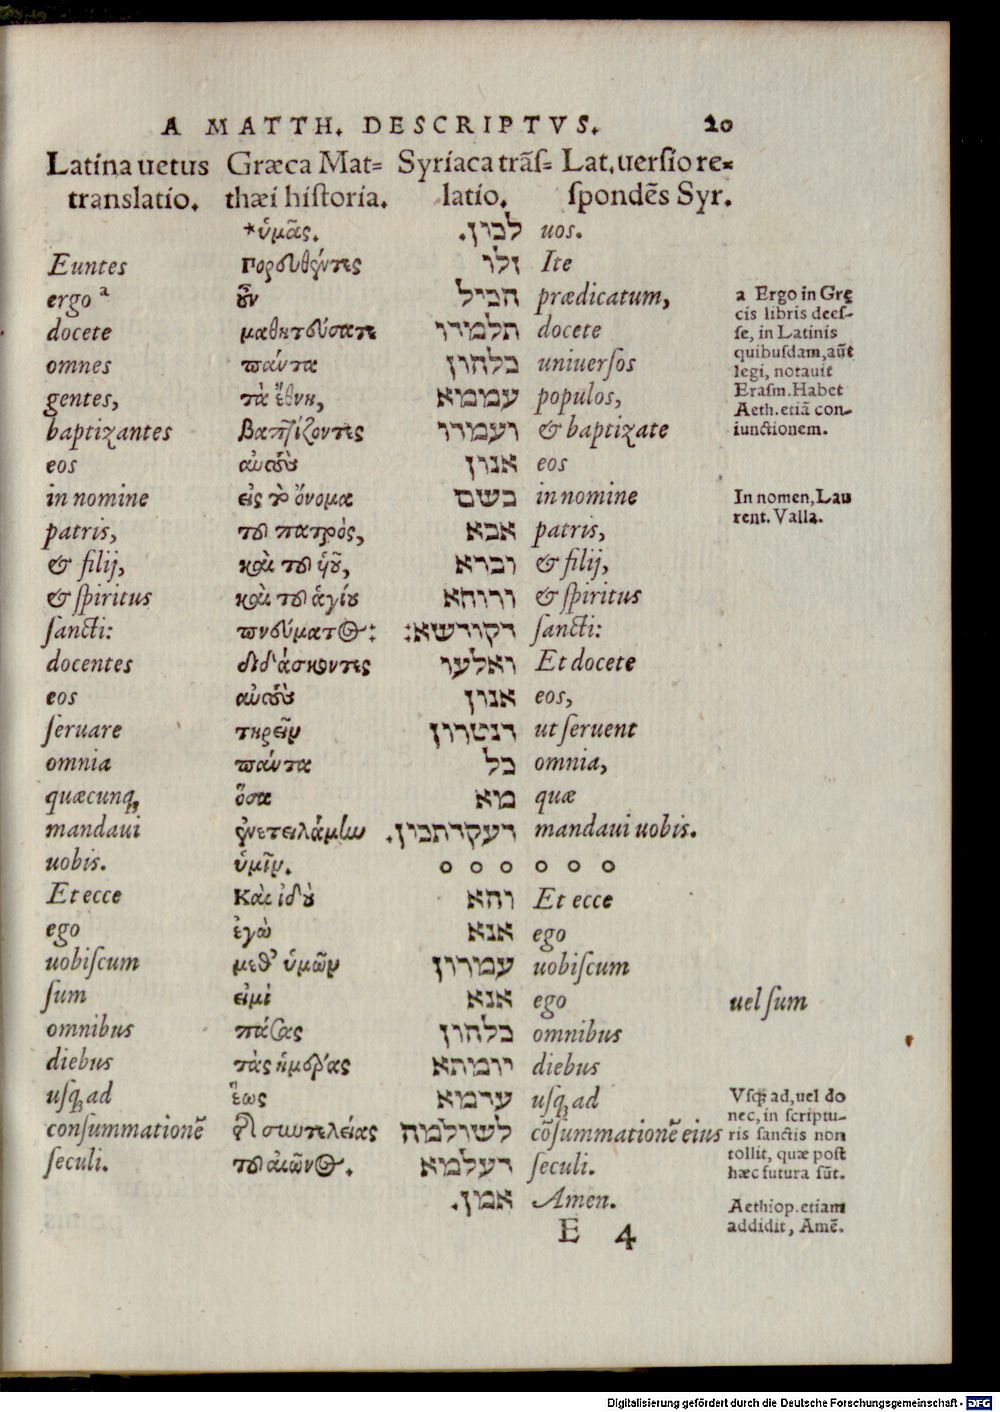 A MATTH. DESCRIPTVS. 20
Latina uetus Græca Mat= Syriaca trãs= Lat. uersio re=
translatio. thæi historia. latio. spondẽs Syr.
*ὑμᾶς. לכון. uos.
Euntes πορευθέντες זלו Ite
ergo a οὖν הכיל prædicatum,
docete μαθητεύσατε תלמידו docete
omnes πάντα כלהון uniuersos
gentes, τὰ ἔθνη, עממא populos,
baptizantes βαπτίζοντες ועמדו & baptizate
eos αὐτοὺς אנון eos
in nomine εἰς τὸ ὄνομα בשם in nomine
patris, τοῦ πατρὸς, אבא patris,
& filij, καὶ τοῦ ὑοῦ, וברא & filij,
& spiritus καὶ τοῦ ἁγίου ורוחא & spiritus
sancti: πνεύματος: דקודשא: sancti:
docentes διδάσκοντες ואלפו Et docete
eos αὐτοὺς אנון eos,
seruare τηρεῖν דנטרון ut seruent
omnia πάντα כל omnia,
quæcunq; ὅσα מא quæ
mandaui ἐνετειλάμην דפקדתכון. mandaui uobis.
uobis. ὑμῖν. o o o o o o
Et ecce Καὶ ἰδοὺ והא Et ecce
ego ἐγὼ אנא ego
uobiscum μεθ᾽ ὑμῶν עמכון uobiscum
sum εἰμὶ אנא ego
omnibus πάσας כלהון omnibus
diebus τὰς ἡμέρας יומתא diebus
usq; ad ἕως עדמא usq; ad
consummationẽ τῆς συντελείας לשולמה cõsummationẽ eius
seculi. τοῦ αἰῶνος. דעלמא seculi.
אמין. Amen.
E 4
a Ergo in Gre
cis libris dees-
se, in Latinis
quibusdam, aũt
legi, notauit
Erasm. Habet
Aeth. etiã con-
iunctionem.
In nomen, Lau
rent. Valla.
uel sum
Vsq; ad, uel do
nec, in scriptu-
ris sanctis non
tollit, quæ post
hæc futura sũt.
Aethiop. etiam
addidit, Amẽ.
Digitalisierung gefördert durch die Deutsche Forschungsgemeinschaft - DFG